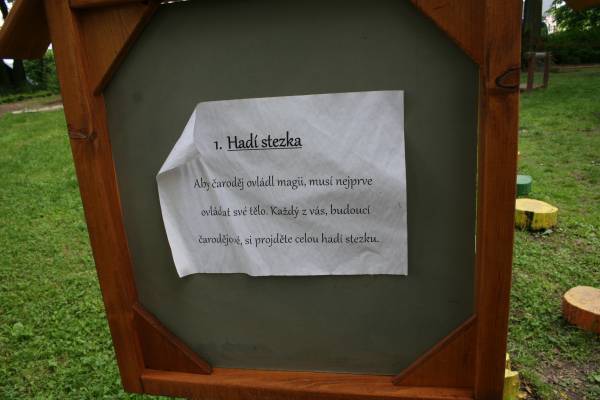 1. Hadí stezka
Aby čaroděj ovládl magii, musí nejprve
ovládat své tělo. Každý z vás, budoucí
čarodějové, si projděte celou hadí stezku.